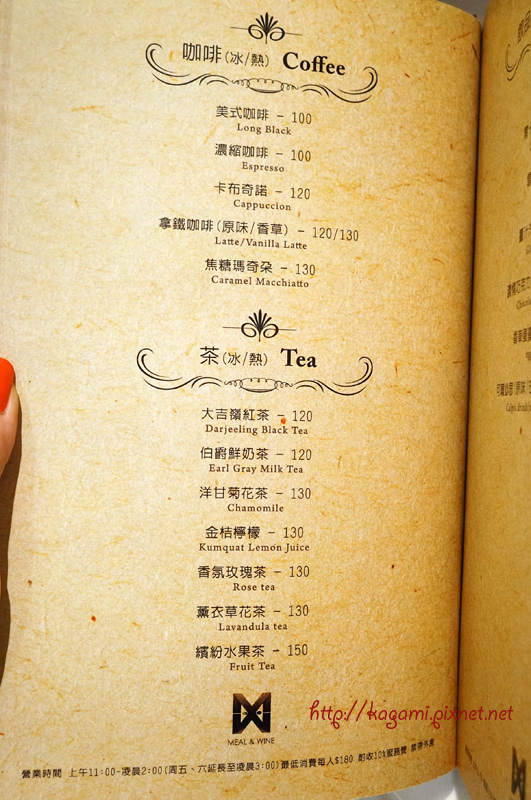 咖啡(冰/熱) Coffee
美式咖啡 - 100
Long Black
濃縮咖啡 - 100
Espresso
卡布奇諾 - 120
Cappuccion
拿鐵咖啡(原味/香草) - 120/130
Latte/Vanilla Latte
焦糖瑪奇朵 - 130
Caramel Macchiatto
茶(冰/熱) Tea
大吉嶺紅茶 - 120
Darjeeling Black Tea
伯爵鮮奶茶 - 120
Earl Gray Milk Tea
洋甘菊花茶 - 130
Chamomile
金桔檸檬 - 130
Kumquat Lemon Juice
香氛玫瑰茶 - 130
Rose tea
薰衣草花茶 - 130
Lavandula tea
繽紛水果茶 - 150
Fruit Tea
MEAL & WINE
http://kagami.pixnet.net
營業時間 上午11:00-凌晨2:00(周五、六延長至凌晨3:00)最低消費每人$180 酌收10%服務費 禁帶外食